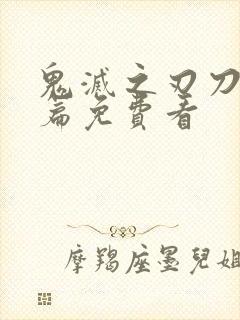 鬼滅之刃刀
篇免費看
摩羯座墨兒姐